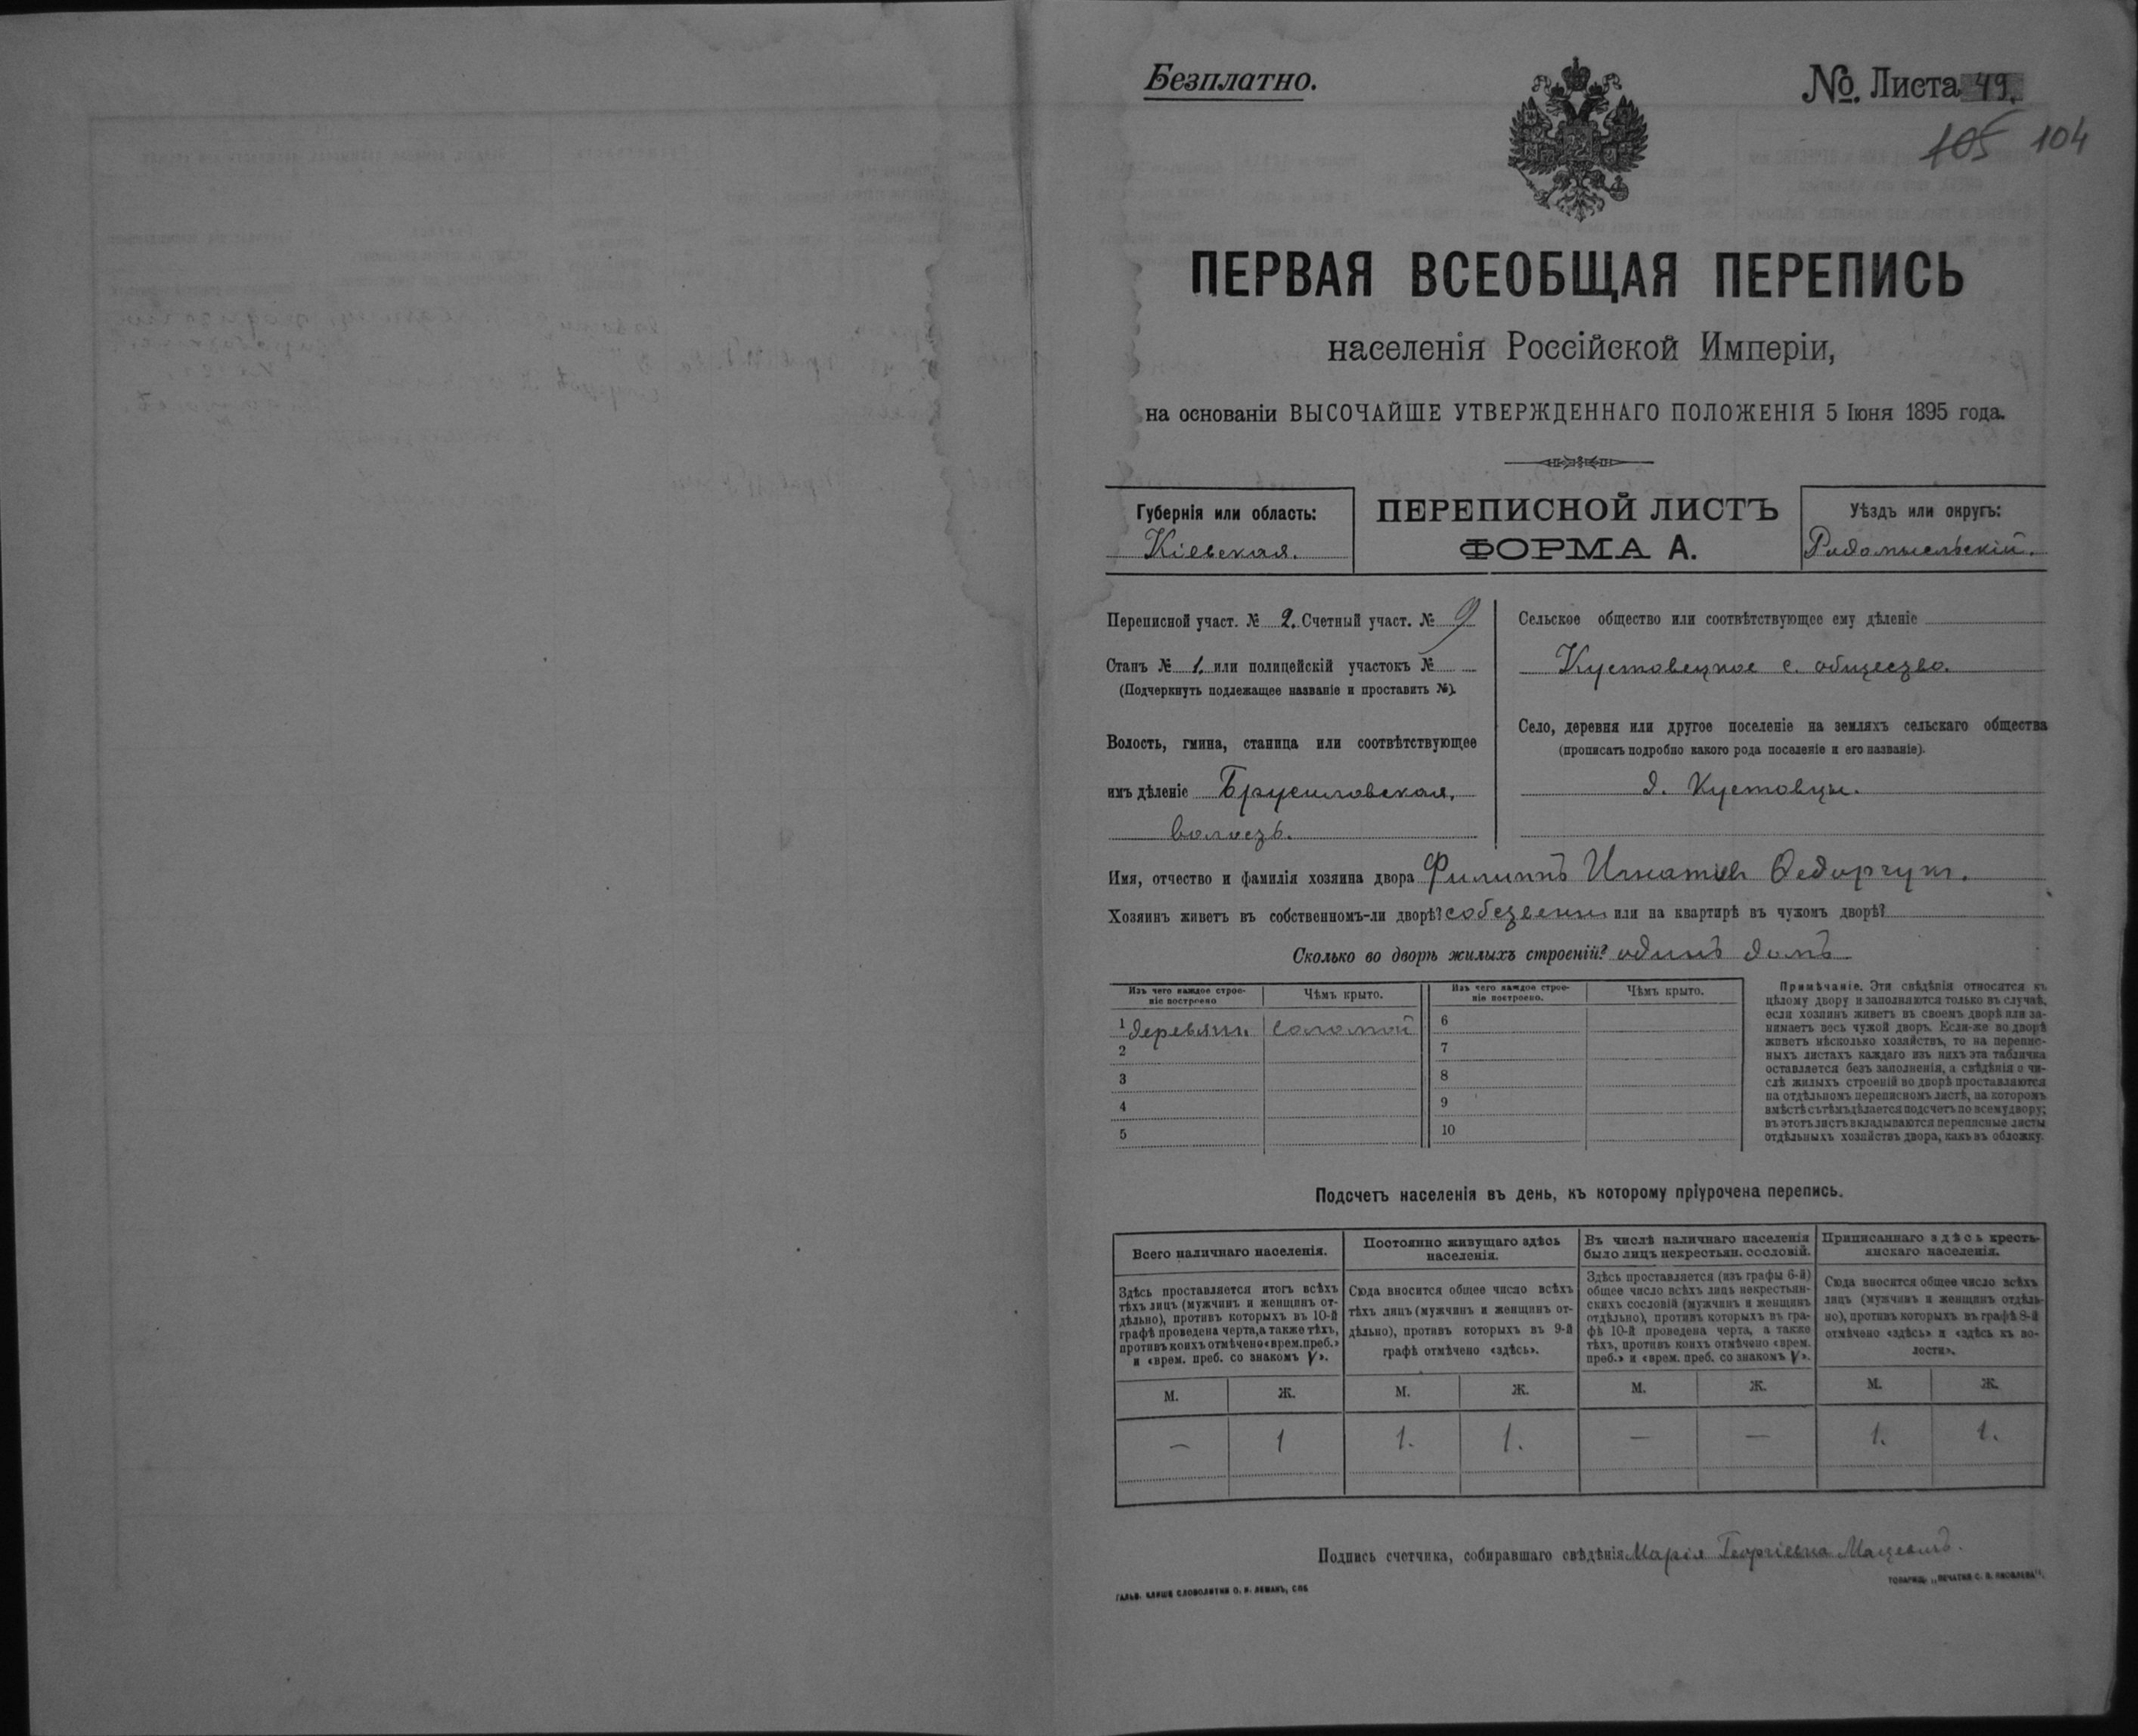 Безплатно.
№. Листа 49.
105 104
ПЕРВАЯ ВСЕОБЩАЯ ПЕРЕПИСЬ
населенія Россійской Имперіи,
на основаніи ВЫСОЧАЙШЕ УТВЕРЖДЕННАГО ПОЛОЖЕНІЯ 5 Іюня 1895 года.
Губернія или область:
Кіевская.
ПЕРЕПИСНОЙ ЛИСТЪ
ФОРМА А.
Уѣздъ или округъ:
Радомысльскій.
Переписной участ. № 2. Счетный участ. № 9
Станъ № 1. или полицейскій участокъ №
(Подчеркнуть подлежащее названіе и проставить №).
Волость, гмина, станица или соотвѣтствующее
имъ дѣленіе Брусиловская,
волость.
Сельское общество или соотвѣтствующее ему дѣленіе
Кустовецкое с. общество.
Село, деревня или другое поселеніе на земляхъ сельскаго общества
(прописать подробно какого рода поселеніе и его названіе).
д. Кустовцы.
Имя, отчество и фамилія хозяина двора Филиппъ Игнатіевъ Федорчукъ.
Хозяинъ живетъ въ собственномъ-ли дворѣ? собствен или на квартирѣ въ чужомъ дворѣ?
Сколько во дворѣ жилыхъ строеній? одинъ домъ
Изъ чего каждое строе-
ніе построено
Чѣмъ крыто.
Изъ чего каждое строе-
ніе построено.
Чѣмъ крыто.
1 деревян. соломой
2
3
4
5
6
7
8
9
10
Примѣчаніе. Эти свѣдѣнія относятся къ
цѣлому двору и заполняются только въ случаѣ,
если хозяинъ живетъ въ своемъ дворѣ или за-
нимаетъ весь чужой дворъ. Если-же во дворѣ
живетъ нѣсколько хозяйствъ, то на перепис-
ныхъ листахъ каждаго изъ нихъ эта табличка
оставляется безъ заполненія, а свѣдѣнія о чи-
слѣ жилыхъ строеній во дворѣ проставляются
на отдѣльномъ переписномъ листѣ, на которомъ
вмѣстѣ съ тѣмъ дѣлается подсчетъ по всему двору;
въ этотъ листъ вкладываются переписные листы
отдѣльныхъ хозяйствъ двора, какъ въ обложку.
Подсчетъ населенія въ день, къ которому пріурочена перепись.
Всего наличнаго населенія.
Здѣсь проставляется итогъ всѣхъ
тѣхъ лицъ (мужчинъ и женщинъ от-
дѣльно), противъ которыхъ въ 10-й
графѣ проведена черта, а также тѣхъ,
противъ коихъ отмѣчено «врем. преб.»
и «врем. преб. со знакомъ V».
Постоянно живущаго здѣсь
населенія.
Сюда вносится общее число всѣхъ
тѣхъ лицъ (мужчинъ и женщинъ от-
дѣльно), противъ которыхъ въ 9-й
графѣ отмѣчено «здѣсь».
Въ числѣ наличнаго населенія
было лицъ некрестьян. сословій.
Здѣсь проставляется (изъ графы 6-й)
общее число всѣхъ лицъ некрестьян-
скихъ сословій (мужчинъ и женщинъ
отдѣльно), противъ которыхъ въ гра-
фѣ 10-й проведена черта, а также
тѣхъ, противъ коихъ отмѣчено «врем.
преб.» и «врем. преб. со знакомъ V».
Приписаннаго здѣсь кресть-
янскаго населенія.
Сюда вносится общее число всѣхъ
лицъ (мужчинъ и женщинъ отдѣль-
но), противъ которыхъ въ графѣ 8-й
отмѣчено «здѣсь» и «здѣсь къ во-
лости».
М. Ж. М. Ж. М. Ж. М. Ж.
— 1 1. 1. — — 1. 1.
Подпись счетчика, собиравшаго свѣдѣнія Марія Георгіевна
ГАЛЬВ. КЛИШЕ СЛОВОЛИТНИ О. И. ЛЕМАНЪ, СПБ
ТОВАРИЩ. „ПЕЧАТНЯ С. П. ЯКОВЛЕВА“.